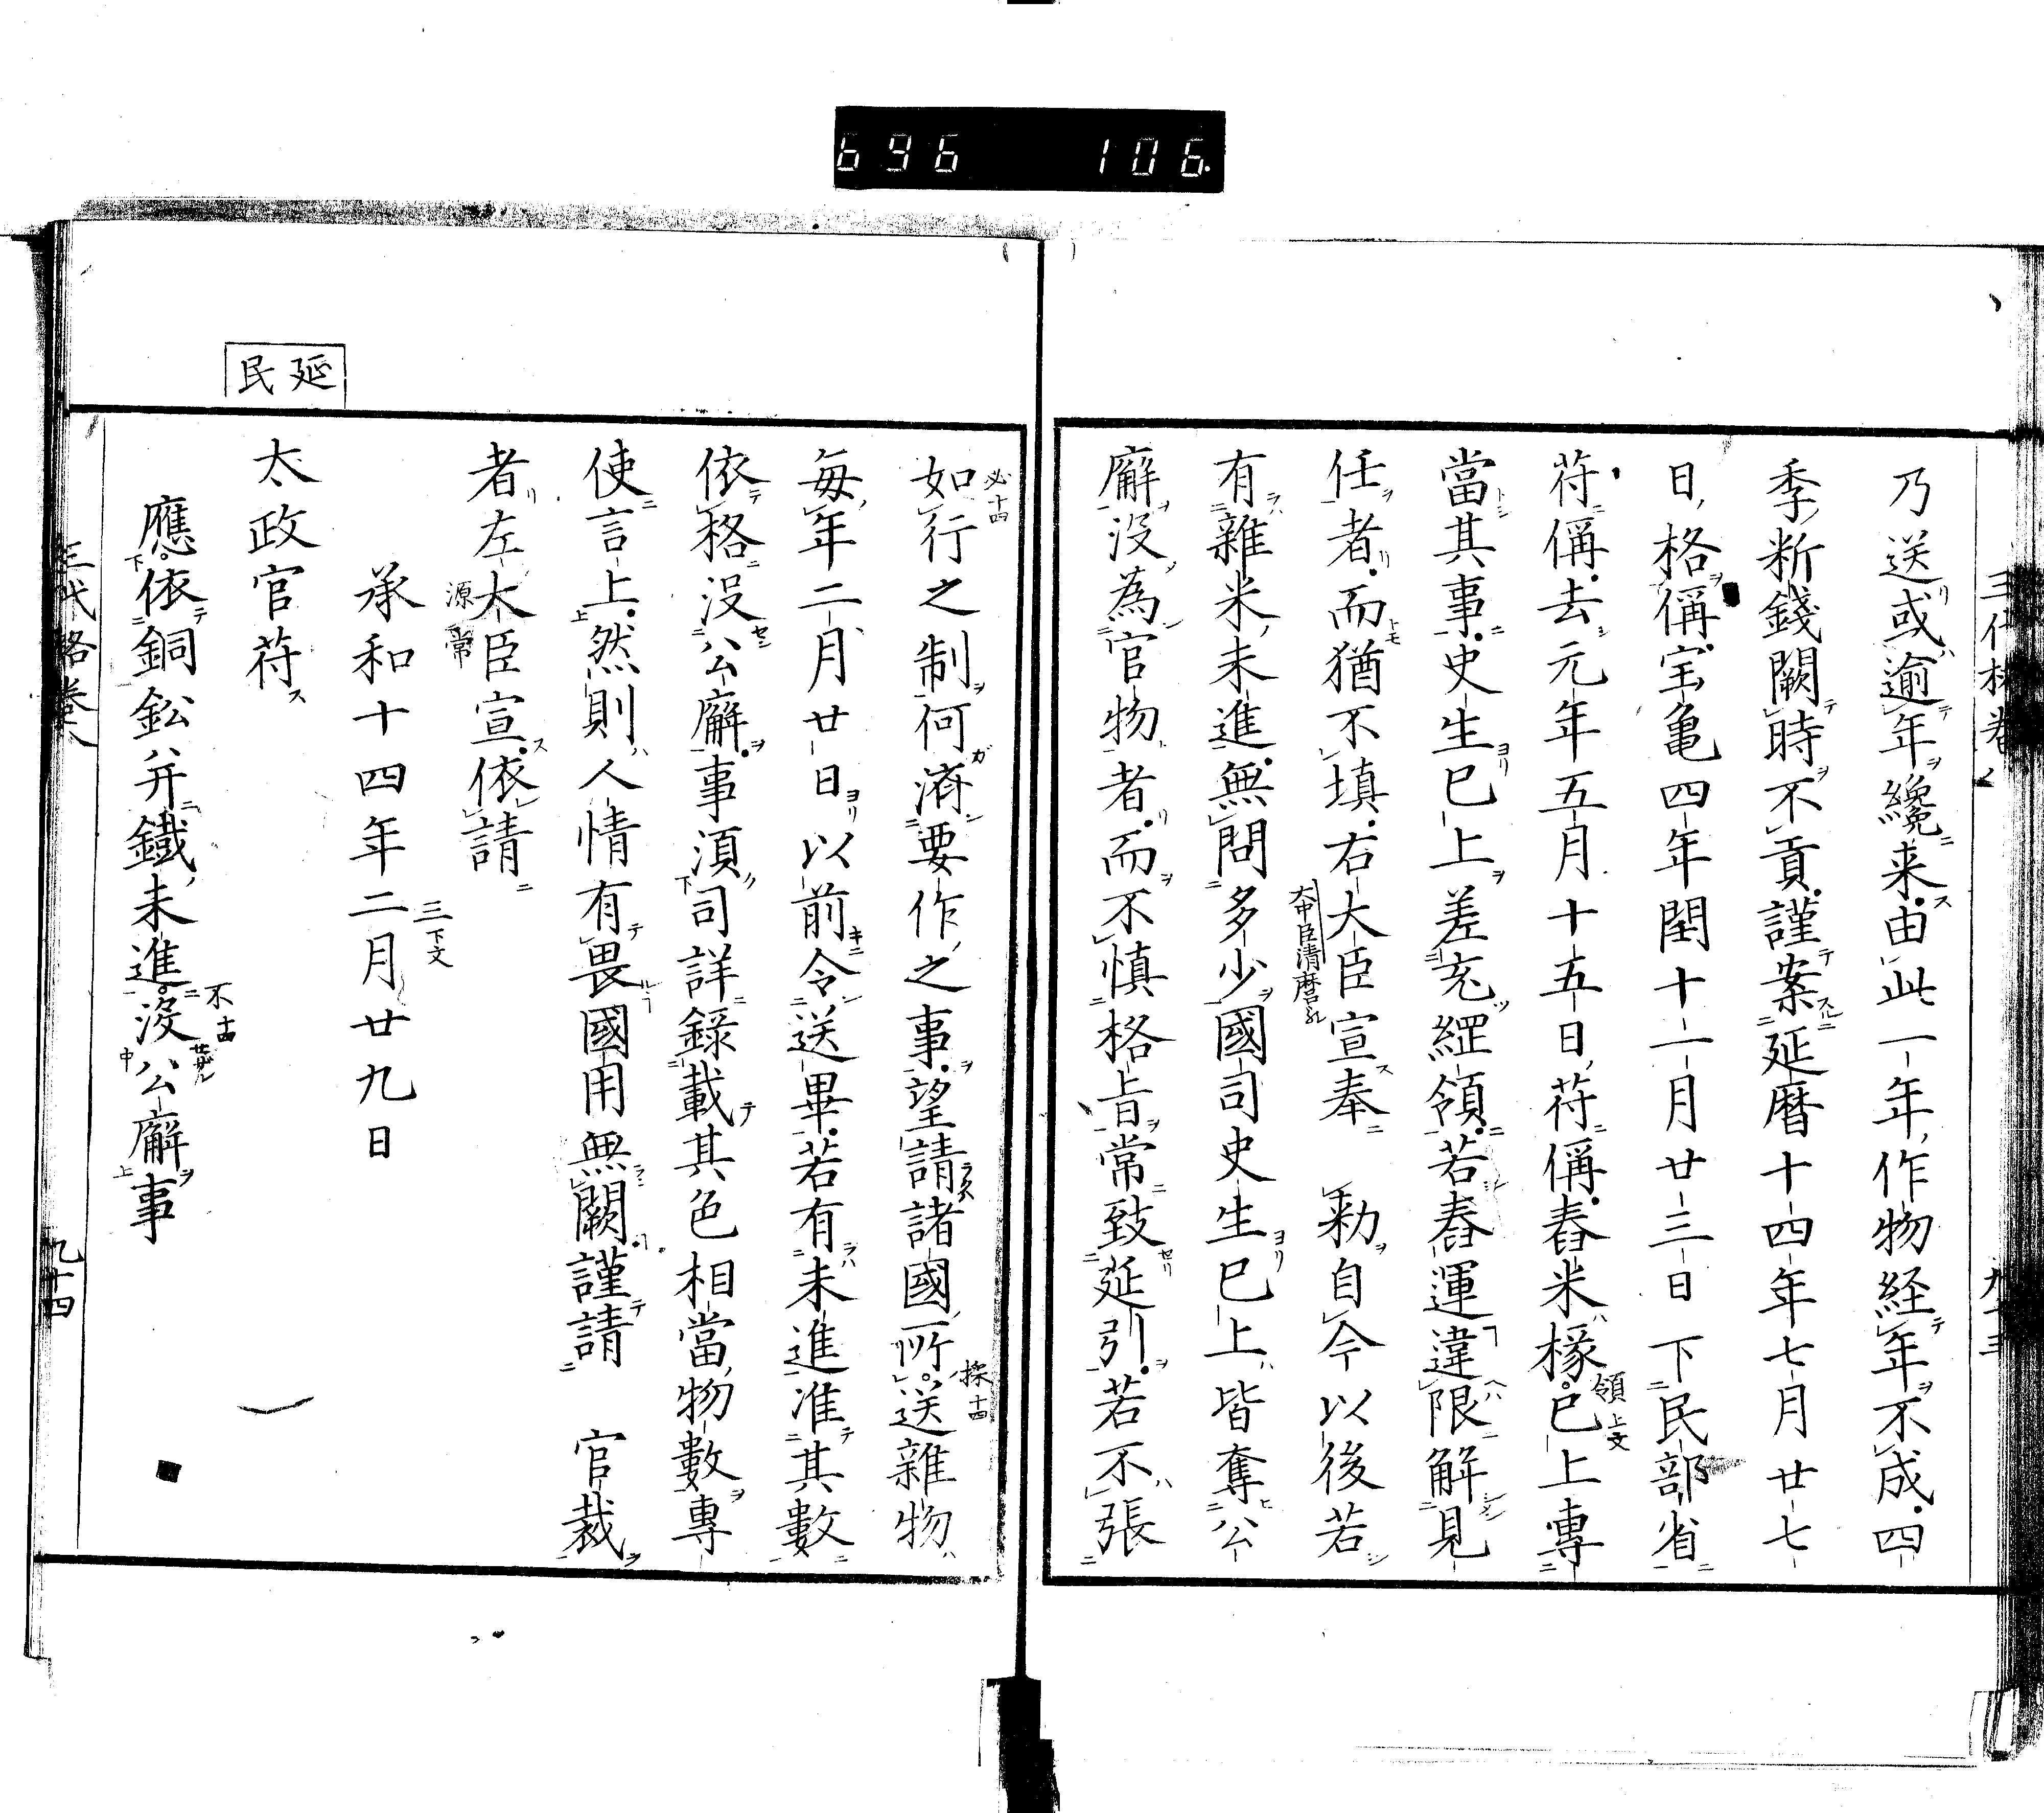 696 106.
三代格卷八 九十三
乃送或逾年纔来由此一年作物経年不成四
季新錢闕時不貢謹案延暦十四年七月廿七
日格偁宝亀四年閏十一月廿三日下民部省
符偁去元年五月十五日符偁舂米椽已上專
領上文
當其事史生已上差充綱領若舂運違限解見
任者而猶不填右大臣宣奉 勅自今以後若
大中臣清麿
有雜米未進無問多少國司史生已上皆奪公
廨没為官物者而不慎格旨常致延引若不張
必十四
如行之制何済要作之事望請諸國所送雜物
採十四
毎年二月廿日以前令送畢若有未進准其數
依格没公廨事須司詳錄載其色相當物數專
使言上然則人情有畏國用無闕謹請 官裁
者左大臣宣依請
源常
承和十四年二月廿九日
三下文
民延
太政官符
應依銅鈆并鐵未進没公廨事
不十四
三代格卷八 九十四